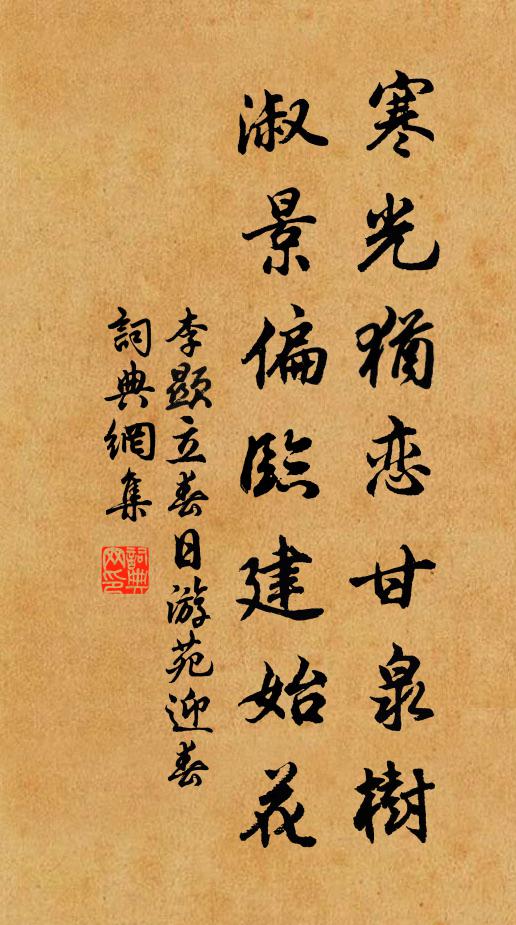 寒光猶恋甘泉樹
淑景偏臨建始花
李顯立春日游苑迎春
詞典網集
詞典網印